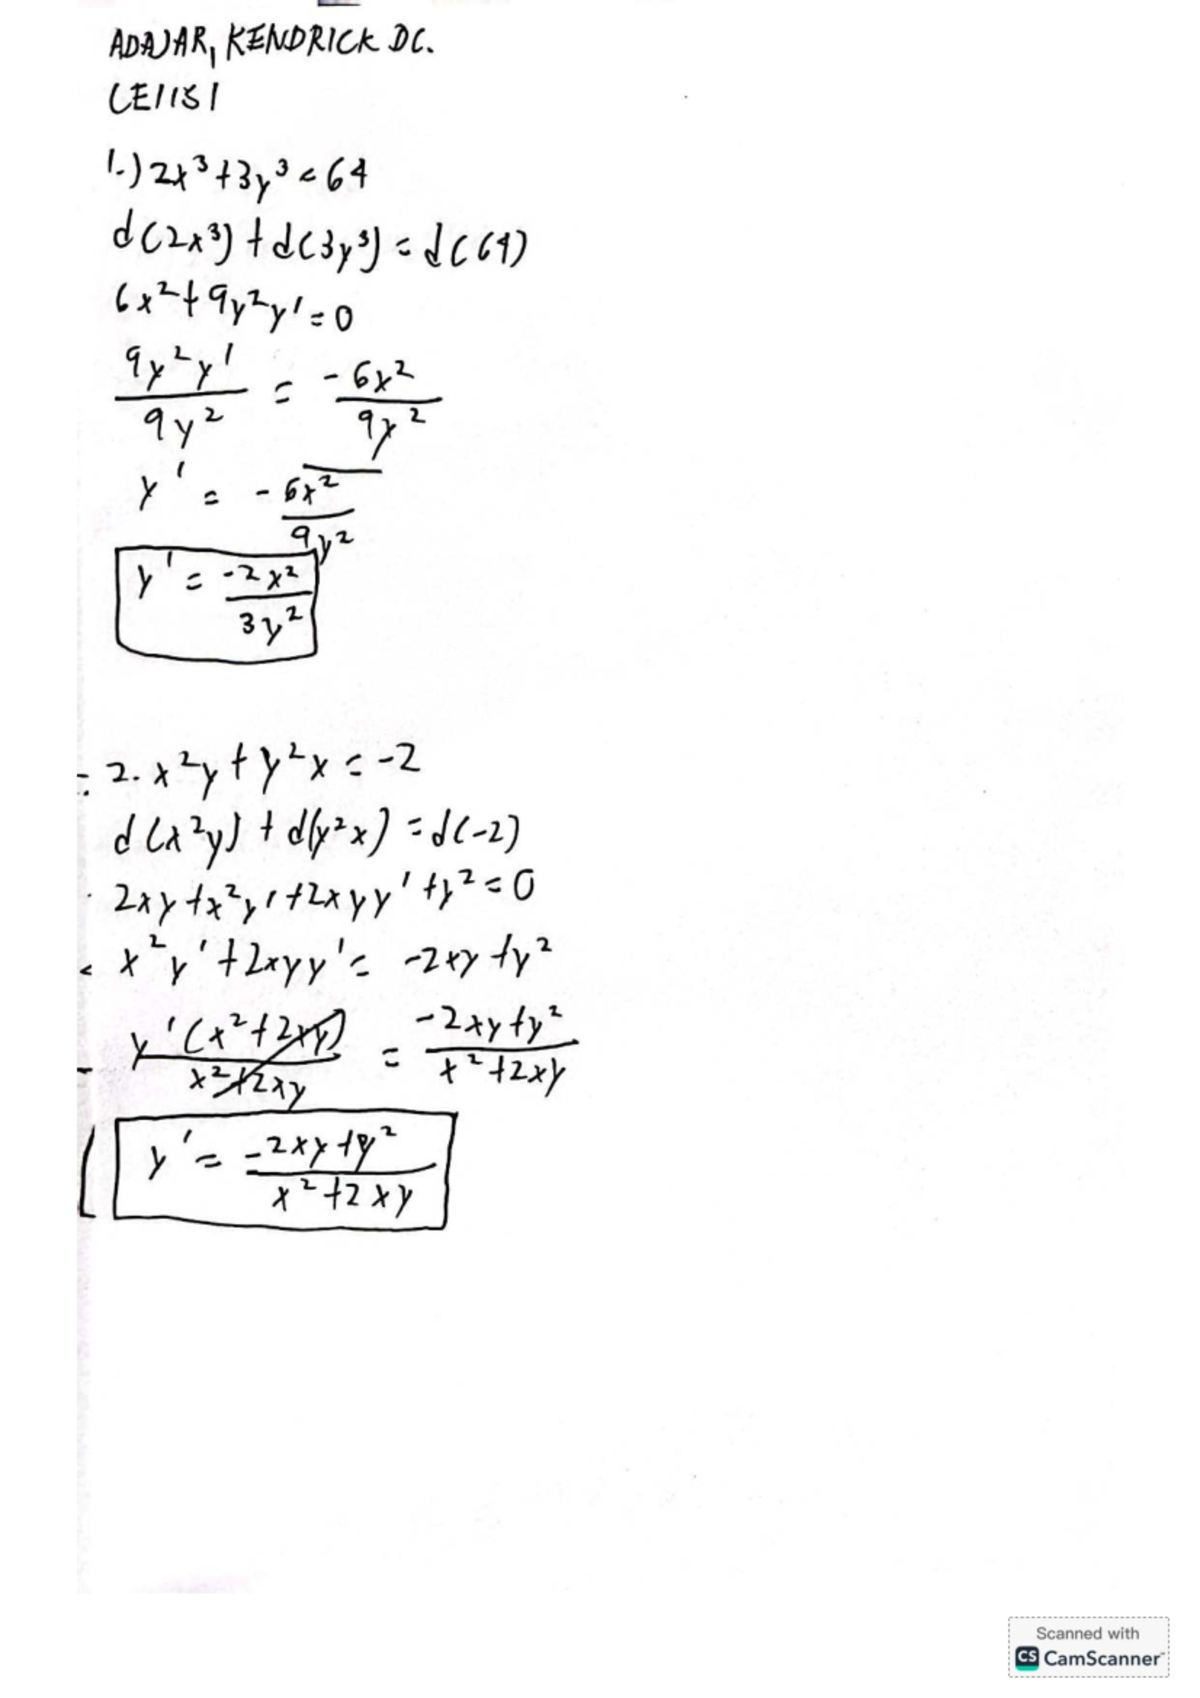 ADAJAR, KENDRICK DC.
CE11S1
1.) 2x³+3y³=64
d(2x³)+d(3y³)=d(64)
6x²+9y²y'=0
9y²y'/9y² = -6x²/9y²
y' = -6x²/9y²
y' = -2x²/3y²
2. x²y+y²x=-2
d(x²y)+d(y²x)=d(-2)
2xy+x²y'+2xyy'+y²=0
x²y'+2xyy'= -2xy+y²
y'(x²+2xy)/x²+2xy = -2xy+y²/x²+2xy
y'= -2xy+y²/x²+2xy
Scanned with
CS CamScanner